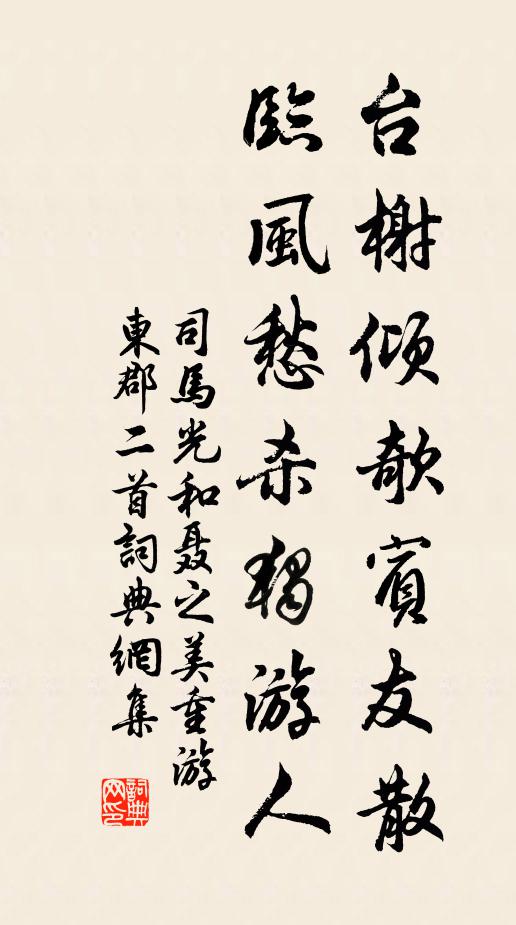 台榭傾欹賓友散
臨風愁杀獨游人
司馬光和聂之美重游
東郡二首詞典網集
詞典网印